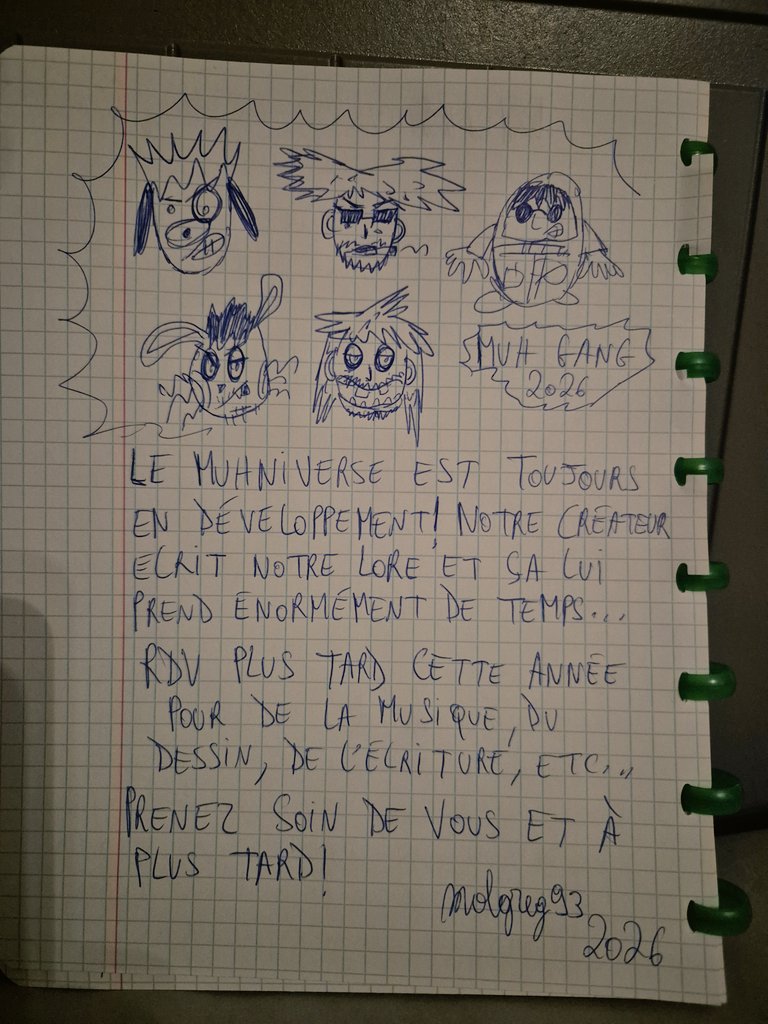 MUH GANG
2026
LE MUHNIVERSE EST TOUJOURS
EN DÉVELOPPEMENT! NOTRE CRÉATEUR
ECRIT NOTRE LORE ET ÇA LUI
PREND ÉNORMÉMENT DE TEMPS...
RDV PLUS TARD CETTE ANNÉE
POUR DE LA MUSIQUE, DU
DESSIN, DE L'ÉCRITURE, ETC...
PRENEZ SOIN DE VOUS ET À
PLUS TARD!
molgreg93
2026